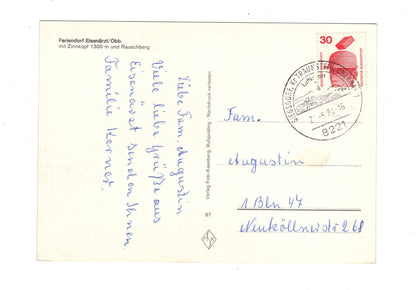 Feriendorf Eisenärzt/Obb.
mit Zinnkopf 1300 m und Rauschberg
Liebe Fam. Augustin
Viele liebe Grüße aus
Eisenärzt senden Ihnen
Familie Kerner.
Verlag Foto-Kaseberg, Ruhpolding · Nachdruck verboten
67
30
8221
Fam.
Augustin
1 Bln 47
Neuköllnerstr 268